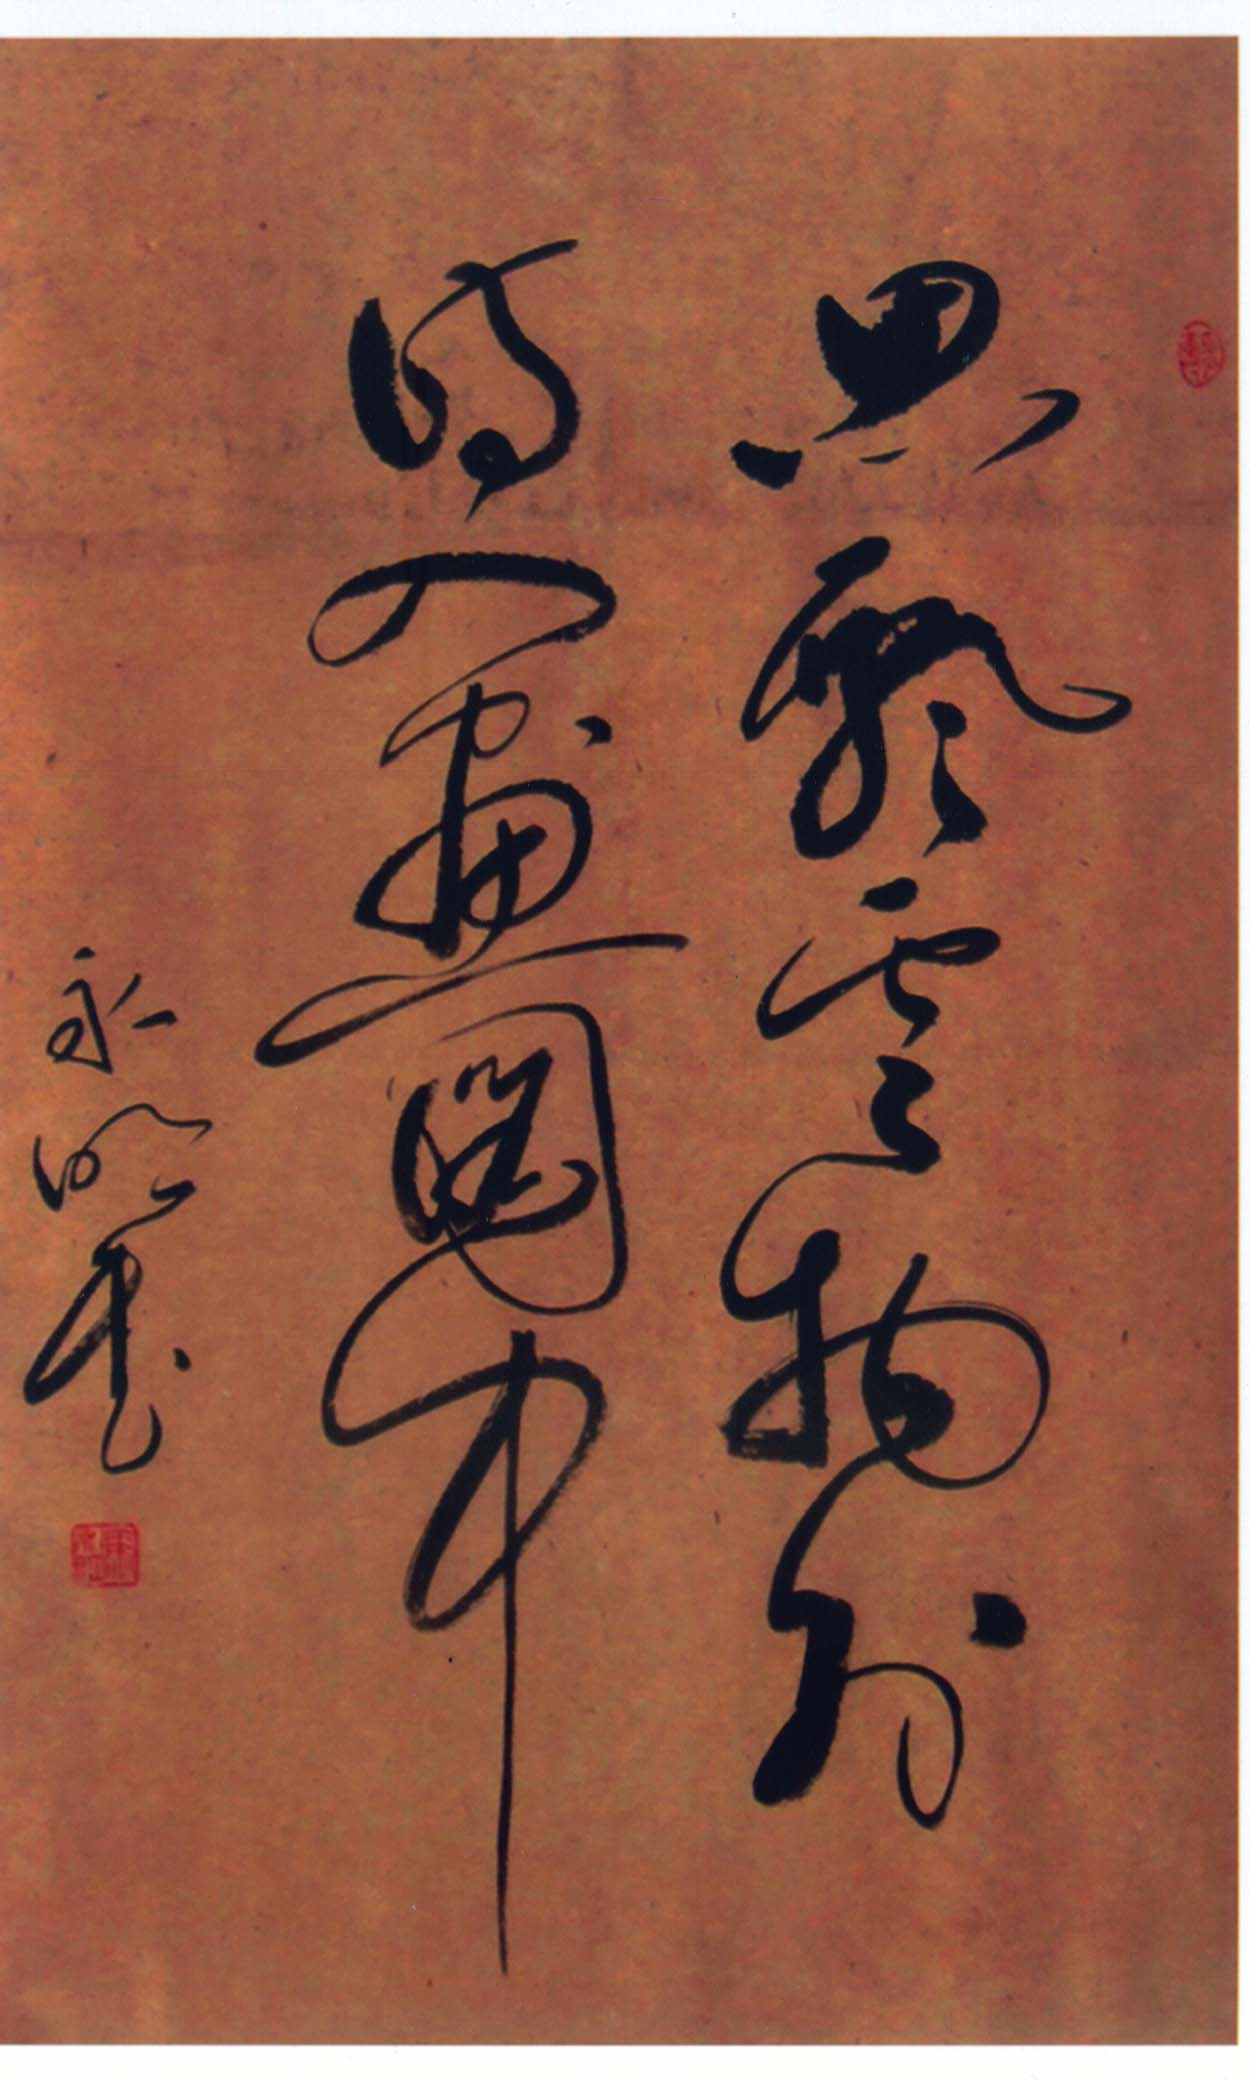 思飄雲物外
詩入畫圖中
永明書